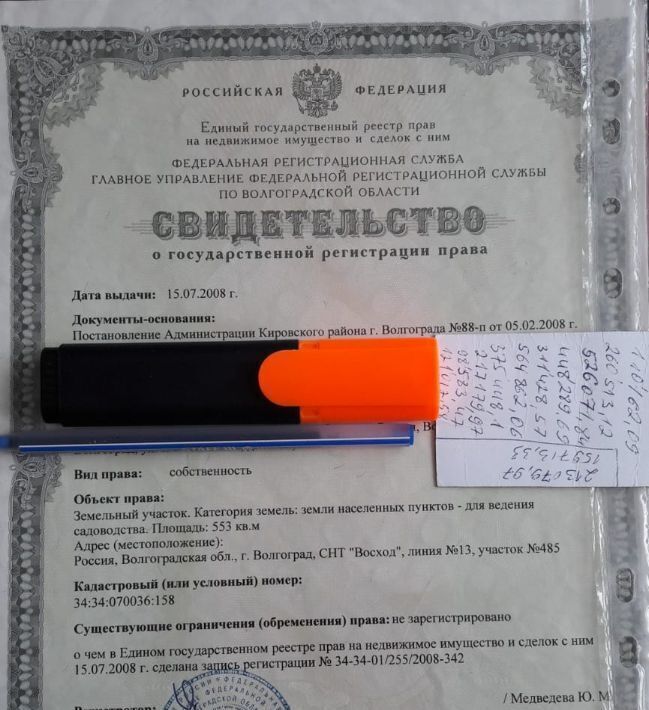 РОССИЙСКАЯ ФЕДЕРАЦИЯ
Единый государственный реестр прав
на недвижимое имущество и сделок с ним
ФЕДЕРАЛЬНАЯ РЕГИСТРАЦИОННАЯ СЛУЖБА
ГЛАВНОЕ УПРАВЛЕНИЕ ФЕДЕРАЛЬНОЙ РЕГИСТРАЦИОННОЙ СЛУЖБЫ
ПО ВОЛГОГРАДСКОЙ ОБЛАСТИ
СВИДЕТЕЛЬСТВО
о государственной регистрации права
Дата выдачи: 15.07.2008 г.
Документы-основания:
Постановление Администрации Кировского района г. Волгограда №88-п от 05.02.2008 г.
Вид права: собственность
Объект права:
Земельный участок. Категория земель: земли населенных пунктов - для ведения
садоводства. Площадь: 553 кв.м
Адрес (местоположение):
Россия, Волгоградская обл., г. Волгоград, СНТ "Восход", линия №13, участок №485
Кадастровый (или условный) номер:
34:34:070036:158
Существующие ограничения (обременения) права: не зарегистрировано
о чем в Едином государственном реестре прав на недвижимое имущество и сделок с ним
15.07.2008 г. сделана запись регистрации № 34-34-01/255/2008-342
/ Медведева Ю. М
260513,12
448289,69
311428,57
564862,06
375448,1
217179,97
98583,47
213079,97
159713,33